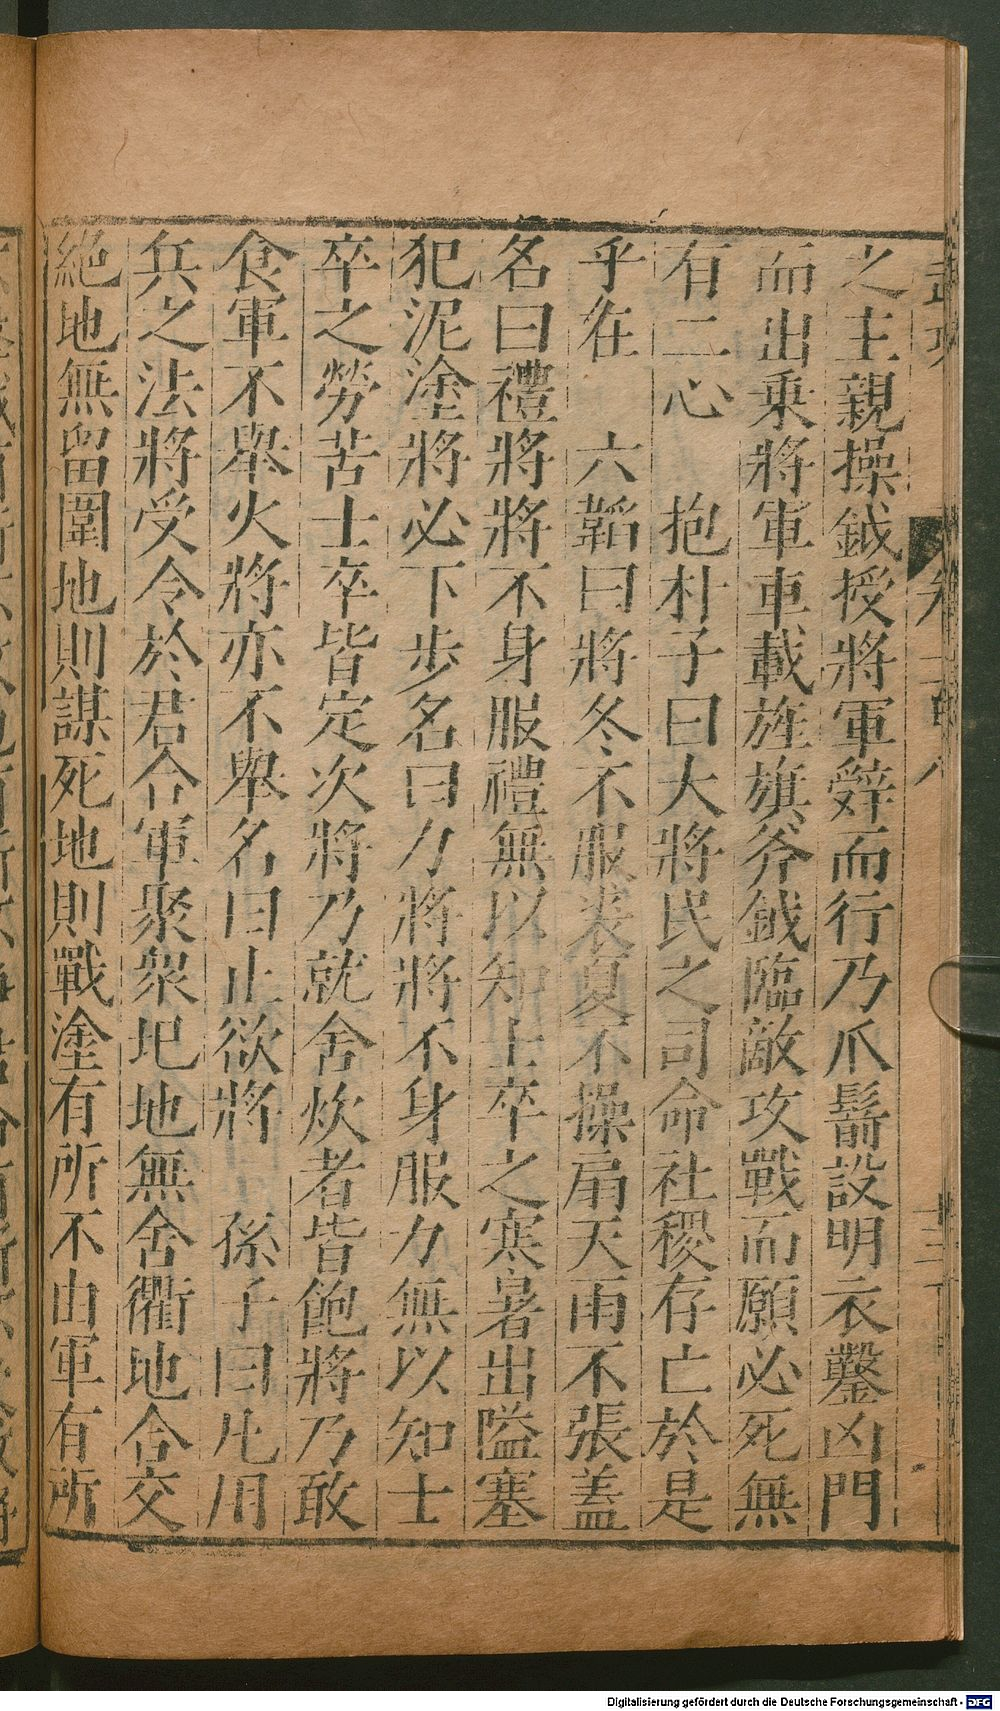 之主親操鉞授將軍辤而行乃爪鬋設明衣鑿凶門
而出乘將軍車載旌旗斧鉞臨敵攻戰而願必死無
有二心　抱朴子曰大將民之司命社稷存亡於是
乎在　六韜曰將冬不服裘夏不操扇天雨不張蓋
名曰禮將將不身服禮無以知士卒之寒暑出隘塞
犯泥塗將必下步名曰力將將不身服力無以知士
卒之勞苦士卒皆定次將乃就舍炊者皆飽將乃敢
食軍不舉火將亦不舉名曰止欲將　孫子曰凡用
兵之法將受令於君合軍聚衆圯地無舍衢地合交
絕地無留圍地則謀死地則戰塗有所不由軍有所
Digitalisierung gefördert durch die Deutsche Forschungsgemeinschaft - DFG